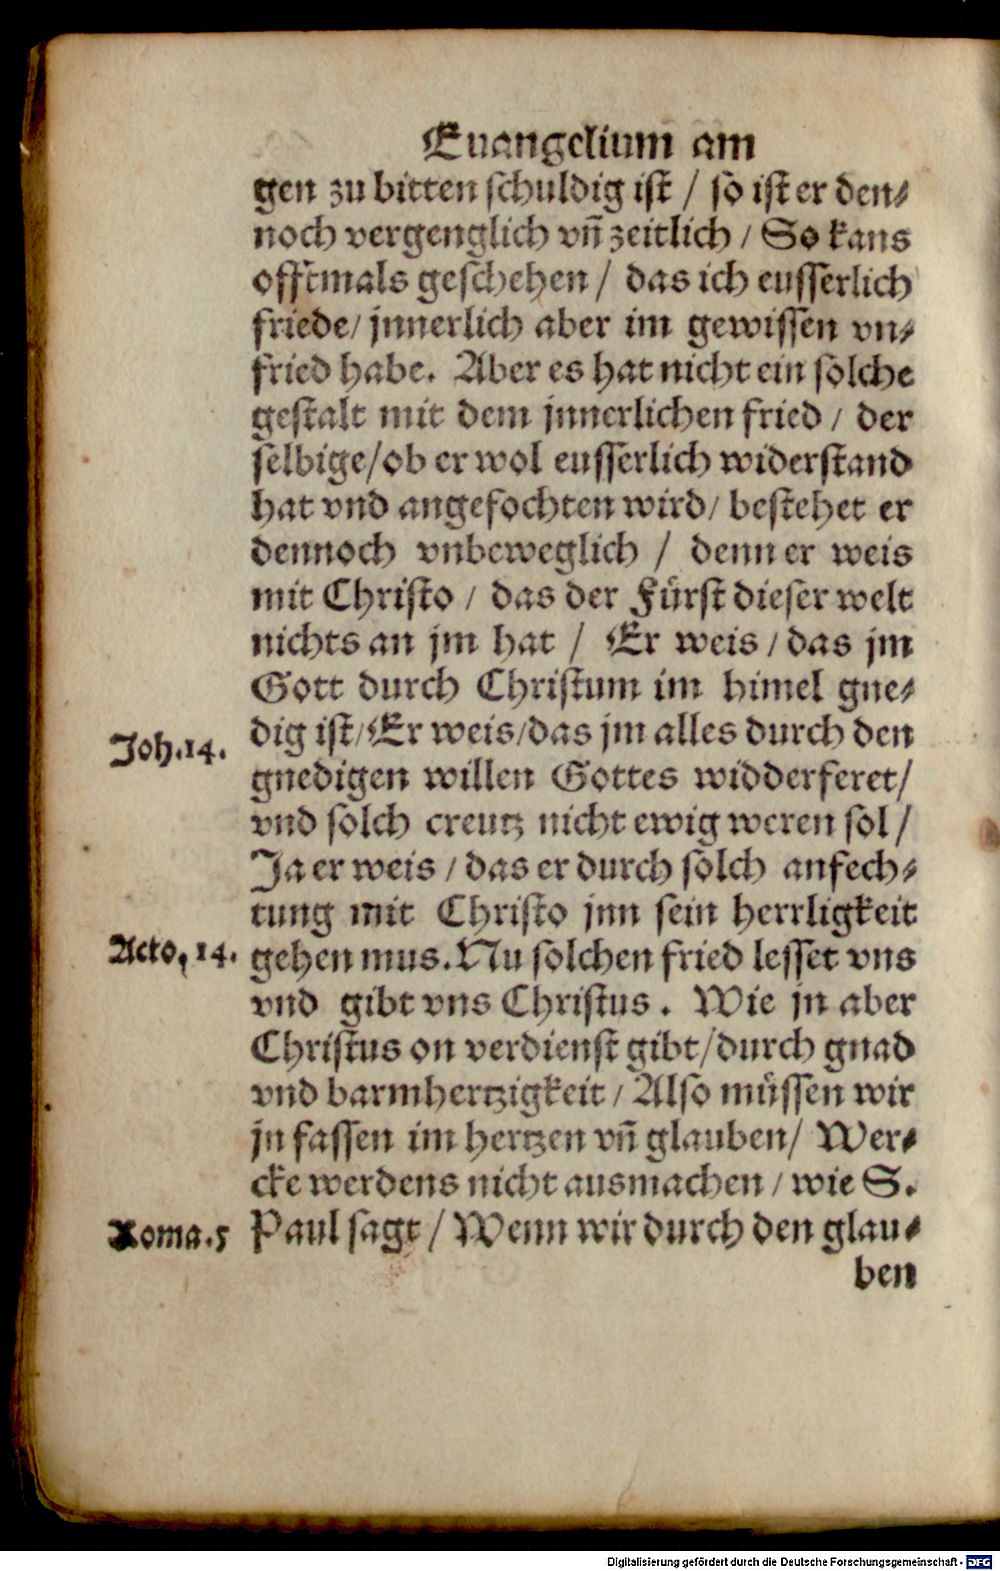 Euangelium am
gen zu bitten schuldig ist / so ist er den⸗
noch vergenglich vñ zeitlich / So kans
offtmals geschehen / das ich eusserlich
friede / jnnerlich aber im gewissen vn⸗
fried habe. Aber es hat nicht ein solche
gestalt mit dem jnnerlichen fried / der
selbige / ob er wol eusserlich widerstand
hat vnd angefochten wird / bestehet er
dennoch vnbeweglich / denn er weis
mit Christo / das der Fürst dieser welt
nichts an jm hat / Er weis / das jm
Gott durch Christum im himel gne⸗
dig ist / Er weis / das jm alles durch den
Joh.14.
gnedigen willen Gottes widderferet /
vnd solch creutz nicht ewig weren sol /
Ja er weis / das er durch solch anfech⸗
tung mit Christo jnn sein herrligkeit
Acto. 14.
gehen mus. Nu solchen fried lesset vns
vnd gibt vns Christus. Wie jn aber
Christus on verdienst gibt / durch gnad
vnd barmhertzigkeit / Also müssen wir
jn fassen im hertzen vñ glauben / Wer⸗
cke werdens nicht ausmachen / wie S.
Roma.5
Paul sagt / Wenn wir durch den glau⸗
ben
Digitalisierung gefördert durch die Deutsche Forschungsgemeinschaft - DFG